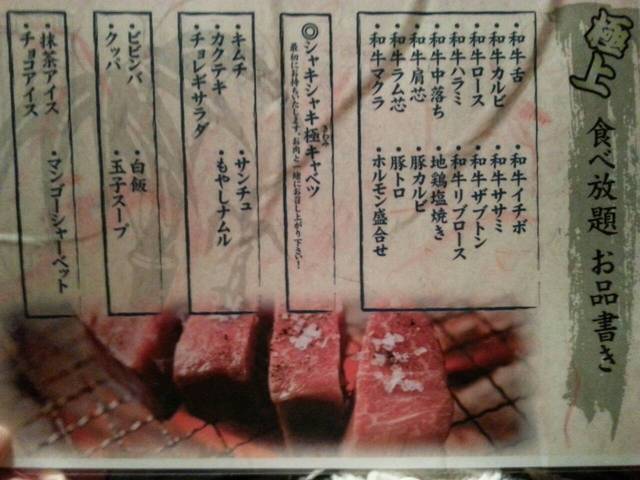 極上 食べ放題 お品書き
・和牛舌 ・和牛イチボ
・和牛カルビ ・和牛ササミ
・和牛ロース ・和牛ザブトン
・和牛ハラミ ・和牛リブロース
・和牛中落ち ・地鶏塩焼き
・和牛肩芯 ・豚カルビ
・和牛ラム芯 ・豚トロ
・和牛マクラ ・ホルモン盛合せ
◎シャキシャキ極キャベツ
きわみ
最初にお持ちいたします。お肉と一緒にお召し上がり下さい!
・キムチ ・サンチュ
・カクテキ ・もやしナムル
・チョレギサラダ
・ビビンバ ・白飯
・クッパ ・玉子スープ
・抹茶アイス ・マンゴーシャーベット
・チョコアイス